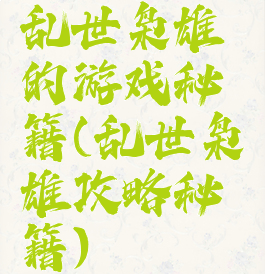 乱世枭雄
的游戏秘
籍(乱世枭
雄攻略秘
籍)